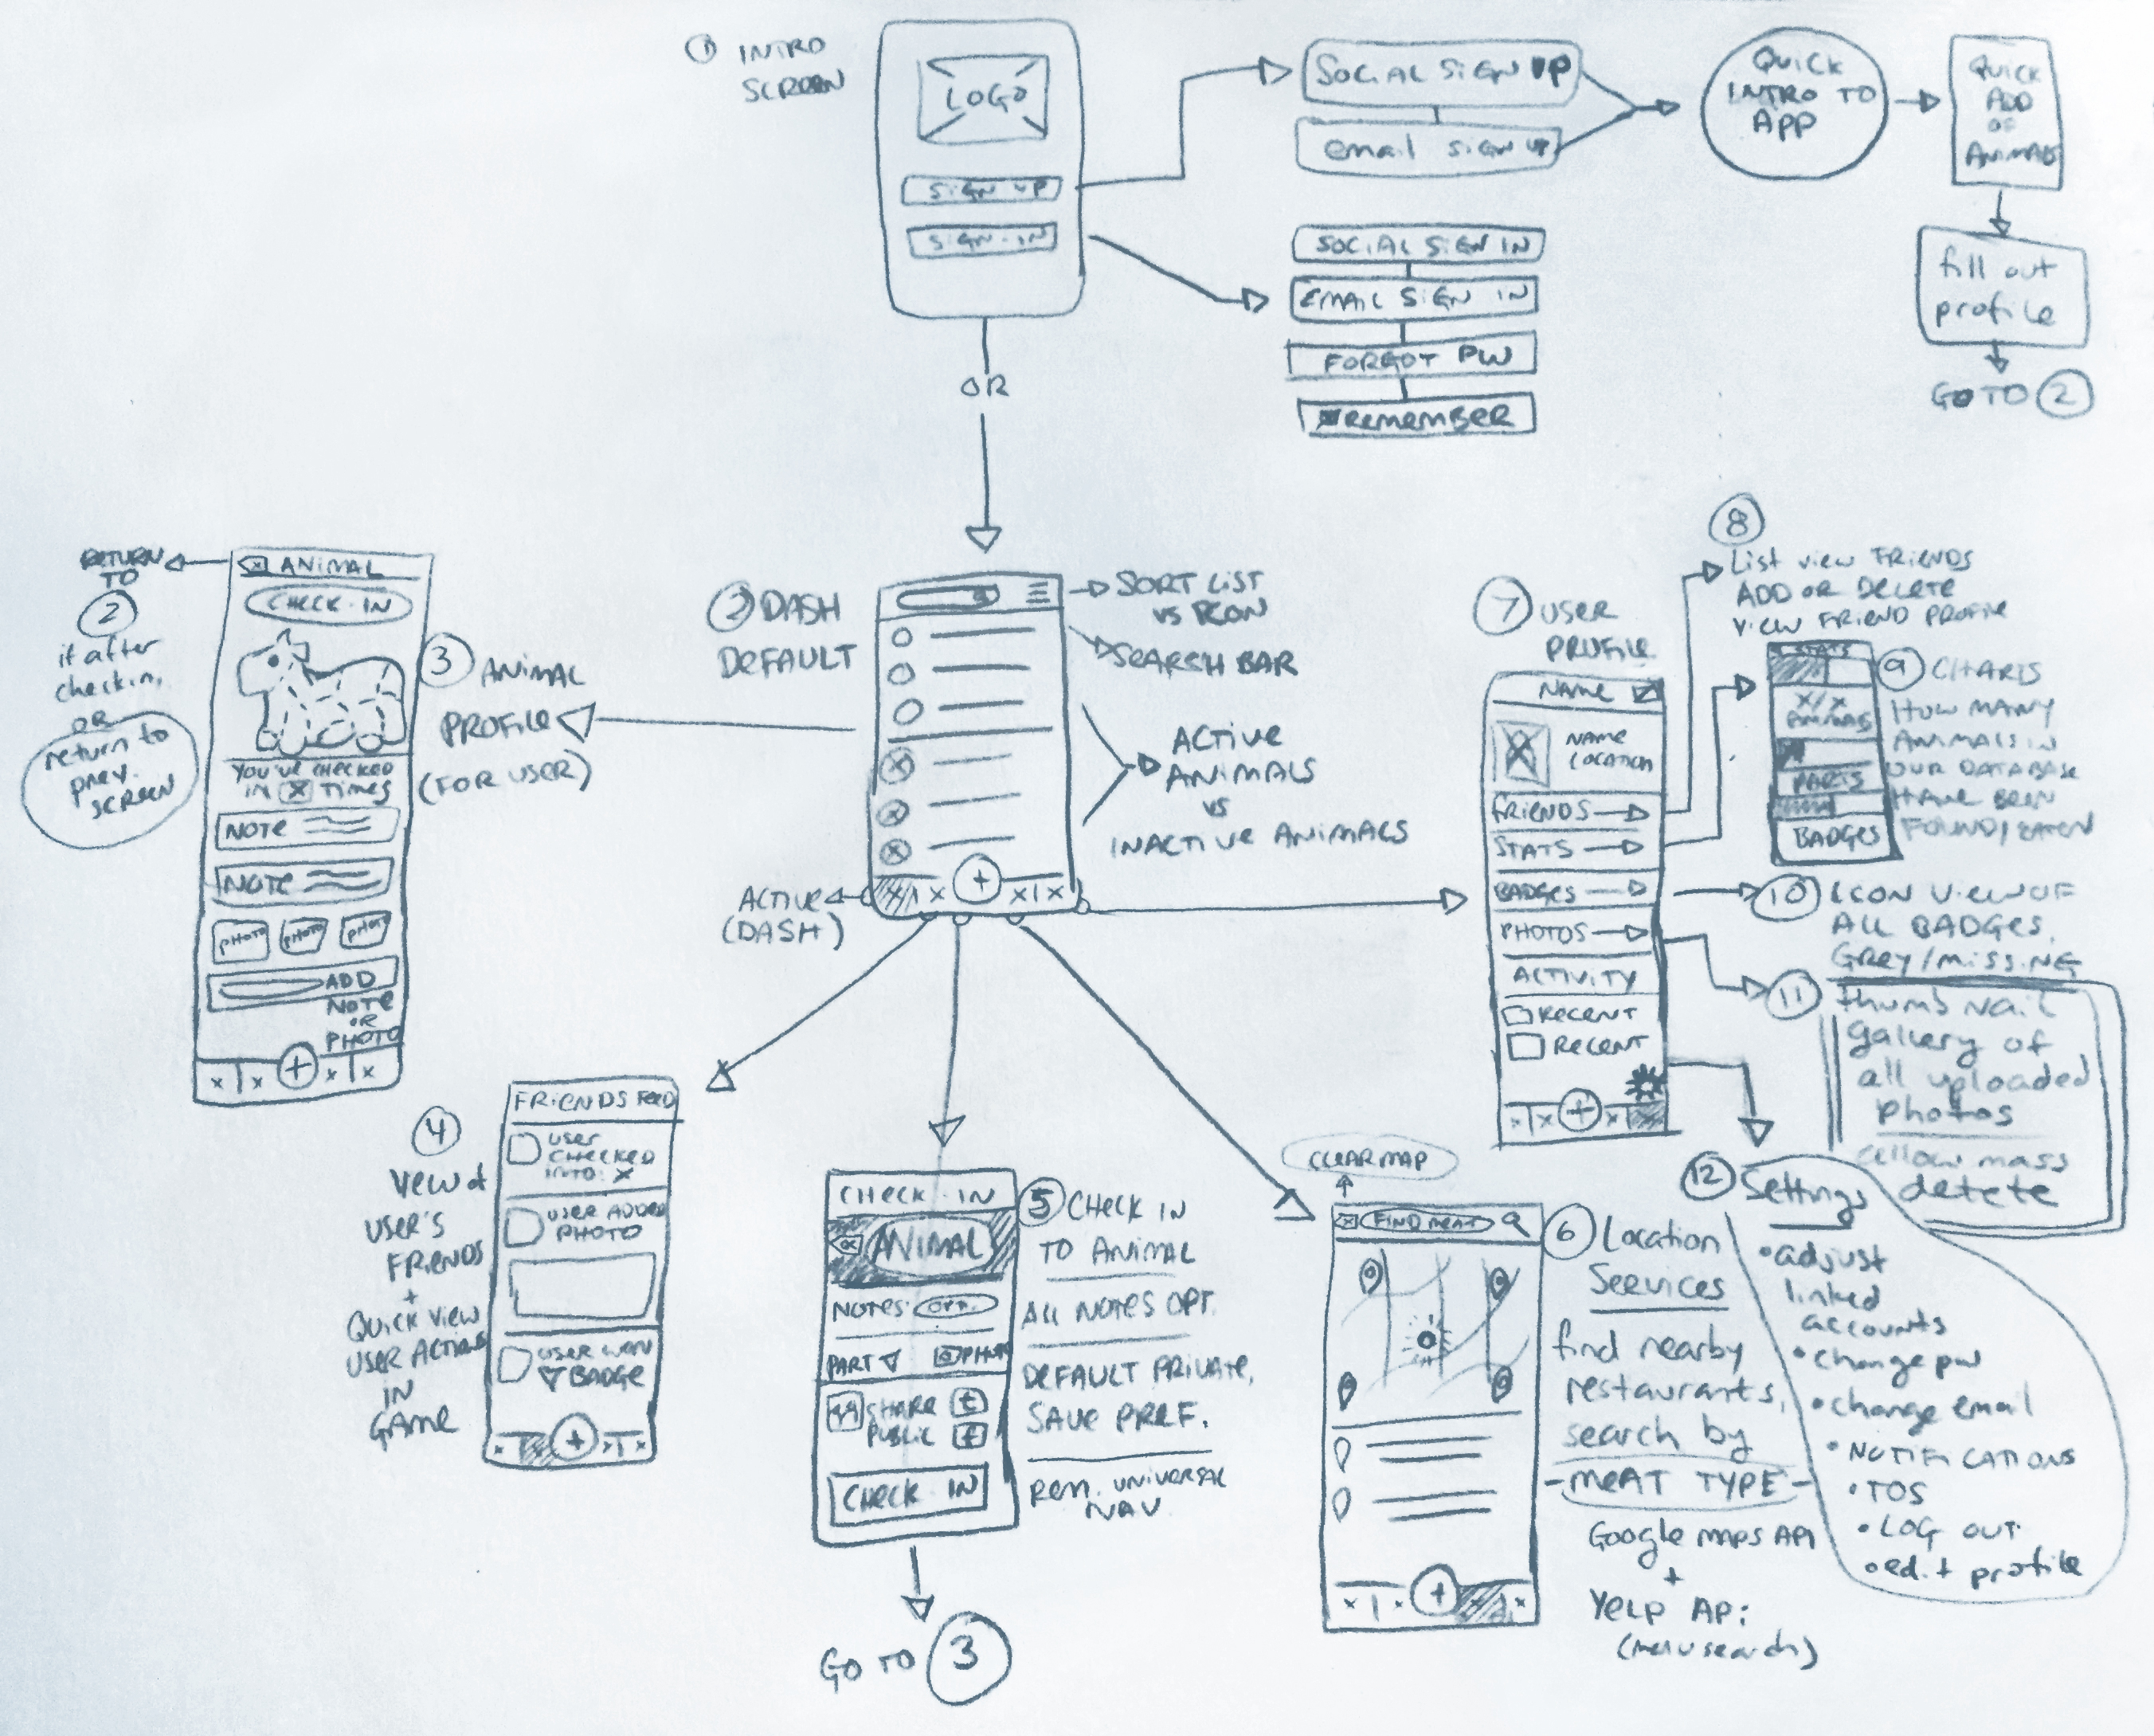 ① INTRO
SCREEN
LOGO
SIGN UP
SIGN-IN
SOCIAL SIGN UP
email sign up
Quick
INTRO TO
APP
QUICK
ADD
OF
ANIMALS
fill out
profile
GO TO ②
SOCIAL SIGN IN
EMAIL SIGN IN
FORGOT PW
REMEMBER
OR
② DASH
DEFAULT
SORT LIST
VS ICON
SEARCH BAR
ACTIVE
ANIMALS
VS
INACTIVE ANIMALS
ACTIVE
(DASH)
x | x + x | x
RETURN
TO
②
if after
checkin,
OR
return to
prev.
screen
x ANIMAL
CHECK-IN
YOU'VE CHECKED
IN X TIMES
NOTE
NOTE
PHOTO PHOTO PHOTO
ADD
NOTE
OR
PHOTO
x | x + x | x
③ ANIMAL
PROFILE
(FOR USER)
④
VEW of
USER'S
FRIENDS
+
QUICK VIEW
USER ACTIONS
IN
GAME
FRIENDS FEED
USER
CHECKED
INTO: X
USER ADDED
PHOTO
USER WON
BADGE
+
CHECK-IN
ANIMAL
NOTES: OPT.
PART PHOTO
SHARE t
PUBLIC f
CHECK IN
GO TO ③
⑤ CHECK IN
TO ANIMAL
ALL NOTES OPT.
DEFAULT PRIVATE,
SAVE PREF.
REM. UNIVERSAL
NAV
CLEAR MAP
x FIND MEAT
+
⑥ Location
Services
find nearby
restaurants,
search by
-MEAT TYPE-
Google MAPS API
+
YELP API
(menu search)
⑦ USER
PROFILE
NAME
NAME
LOCATION
FRIENDS
STATS
BADGES
PHOTOS
ACTIVITY
RECENT
RECENT
x | x + x
⑧
List view FRIENDS
ADD OR DELETE
VIEW FRIEND PROFILE
STATS
X/X
ANIMALS
PARTS
BADGES
⑨ CHARTS
HOW MANY
ANIMALS IN
OUR DATABASE
HAVE BEEN
FOUND/EATEN
⑩ ICON VIEW OF
ALL BADGES,
GREY/MISSING
⑪ thumb nail
gallery of
all uploaded
photos
allow mass
delete
⑫ Settings
• adjust
linked
accounts
• change pw
• change email
• NOTIFICATIONS
• TOS
• LOG OUT
• edit profile